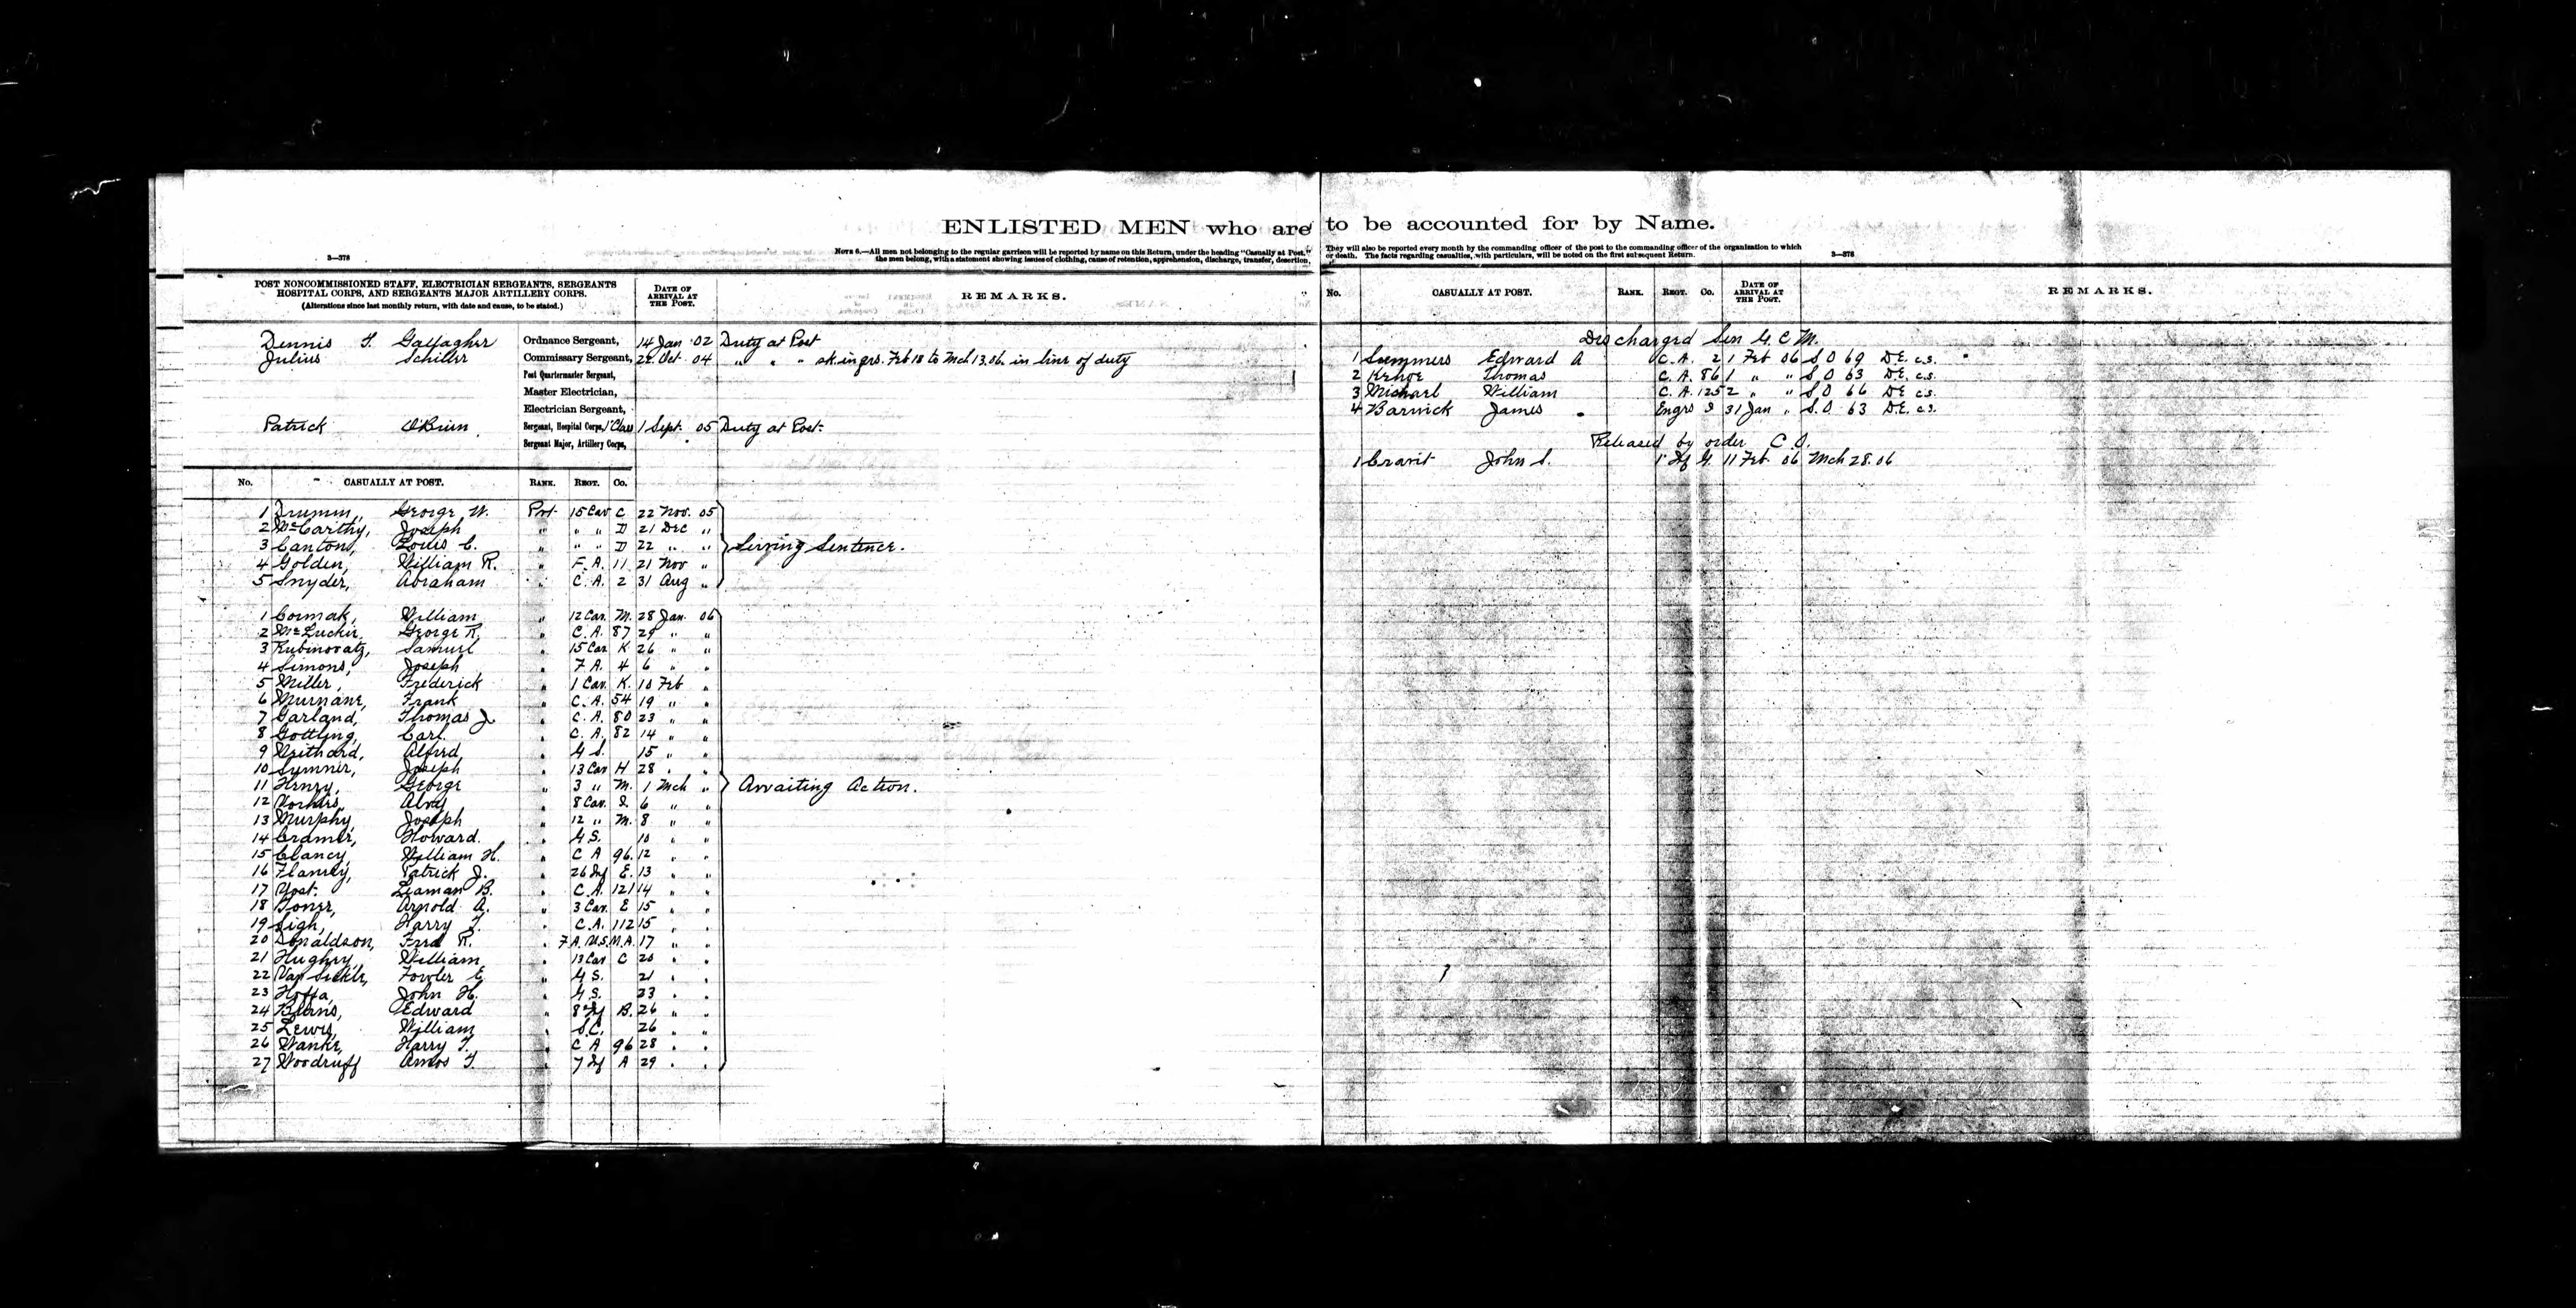 ENLISTED MEN who are to be accounted for by Name.
NOTE 6.—All men not belonging to the regular garrison will be reported by name on this Return, under the heading "Casually at Post." They will also be reported every month by the commanding officer of the post to the commanding officer of the organization to which
the men belong, with a statement showing issues of clothing, cause of retention, apprehension, discharge, transfer, desertion, or death. The facts regarding casualties, with particulars, will be noted on the first subsequent Return.
3—378
3—378
POST NONCOMMISSIONED STAFF, ELECTRICIAN SERGEANTS, SERGEANTS
HOSPITAL CORPS, AND SERGEANTS MAJOR ARTILLERY CORPS.
(Alterations since last monthly return, with date and cause, to be stated.)
DATE OF ARRIVAL AT THE POST.
REMARKS.
Dennis F. Gallagher Ordnance Sergeant, 14 Jan 02 Duty at Post
Julius Schiller Commissary Sergeant, 22 Oct 04 " " " sk. in qrs. Feb 18 to Mch 13.06. in line of duty
Post Quartermaster Sergeant,
Master Electrician,
Electrician Sergeant,
Patrick O'Brien Sergeant, Hospital Corps, 1 Class 1 Sept. 05 Duty at Post.
Sergeant Major, Artillery Corps,
No. CASUALLY AT POST. RANK. REGT. Co.
1 Drumm, George W. Prvt. 15 Cav C 22 Nov. 05
2 McCarthy, Joseph " " " D 21 Dec "
3 Cantons, Louis C. " " " D 22 " " Serving Sentence.
4 Golden, William R. " F. A. 11 21 Nov "
5 Snyder, Abraham " C. A. 2 31 Aug "
1 Cormak, William " 12 Cav. M. 28 Jan. 06
2 McLuckie George R. " C. A. 87 29 " "
3 Rubinovatz, Samuel " 15 Cav K 26 " "
4 Simons, Joseph " F A. 4 6 " "
5 Miller, Frederick " 1 Cav. K. 10 Feb "
6 Murnane, Frank " C. A. 54 19 " "
7 Garland, Thomas J. " C. A. 80 23 " "
8 Gottling, Carl " C. A. 82 14 " "
9 Alfred " G S. 15 " "
10 Sumner, Joseph " 13 Cav H 28 " "
11 Henry, George " 3 " M. 1 Mch " Awaiting Action.
12 Alvy " 8 Cav. I. 6 " "
13 Murphy Joseph " 12 " M. 8 " "
14 Cramer, Howard. " G S. 10 " "
15 Clancy, William H. " C A 96. 12 " "
16 Flanrey, Patrick J. " 26 Inf E. 13 " "
17 Yost. Leaman B. " C. A. 121 14 " "
18 Toner, Arnold A. " 3 Cav. E 15 " "
19 Sigh, Harry T. " C. A. 112 15 " "
20 Donaldson, Fred R. " F. A. U.S.M.A. 17 " "
21 Hughey, William " 13 Cav C 20 " "
22 Van Sickle, Fowler E " G S. 21 " "
23 Hoffa, John H. " G. S. 23 " "
24 Burns, Edward " 8 Inf B. 26 " "
25 Lewis, William " S.C. 26 " "
26 Wanke, Harry F. " C A 96 28 " "
27 Woodruff Amos F. " 7 Inf A 29 " "
No. CASUALLY AT POST. RANK. REGT. Co. DATE OF ARRIVAL AT THE POST. REMARKS.
Discharged Sen G. C. M.
1 Summers Edward A C. A. 2 1 Feb 06 S O 69 D.E. c.s.
2 Kehoe Thomas C. A. 86 1 " " S. O 63 D.E. c.s.
3 Michael William C. A. 125 2 " " S O 66 D.E c.s.
4 Barwick James Engrs I 31 Jan " S. O 63 D.E. c.s.
Released by order C. O.
1 Cravit John S. 1" Inf G. 11 Feb. 06 Mch 28.06